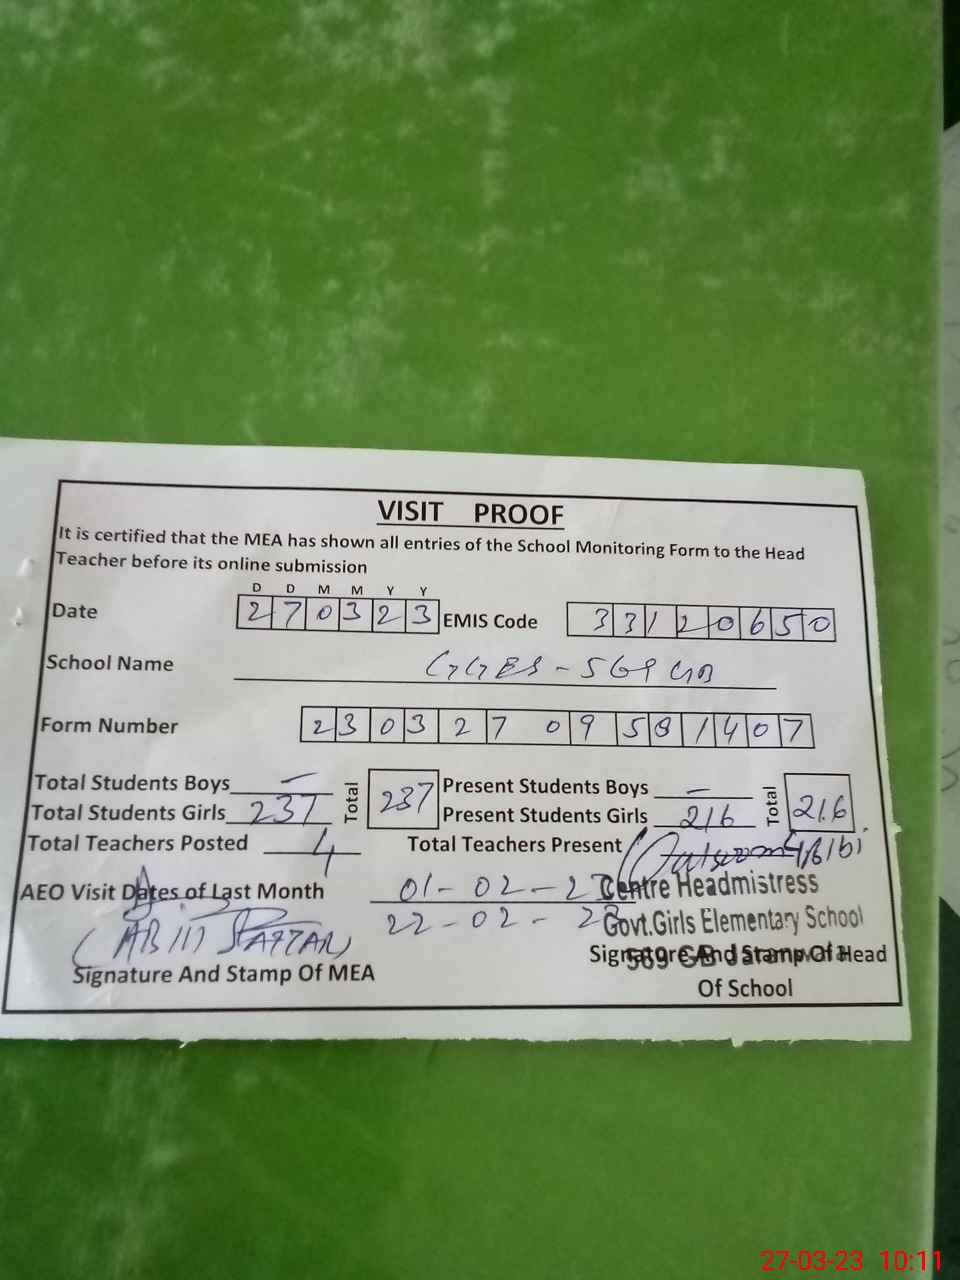 VISIT PROOF
It is certified that the MEA has shown all entries of the School Monitoring Form to the Head
Teacher before its online submission
D D M M Y Y
Date 2 7 0 3 2 3 EMIS Code 3 3 1 2 0 6 5 0
School Name GGES - 569 GB
Form Number 2 3 0 3 2 7 0 9 5 8 1 4 0 7
Total Students Boys — Total 237 Present Students Boys — Total 216
Total Students Girls 237 Present Students Girls 216
Total Teachers Posted 4 Total Teachers Present 4
AEO Visit Dates of Last Month 01-02-23
22-02-23
Centre Headmistress
Govt.Girls Elementary School
569 GB
Signature And Stamp Of MEA
Signature And Stamp Of Head
Of School
27-03-23 10:11